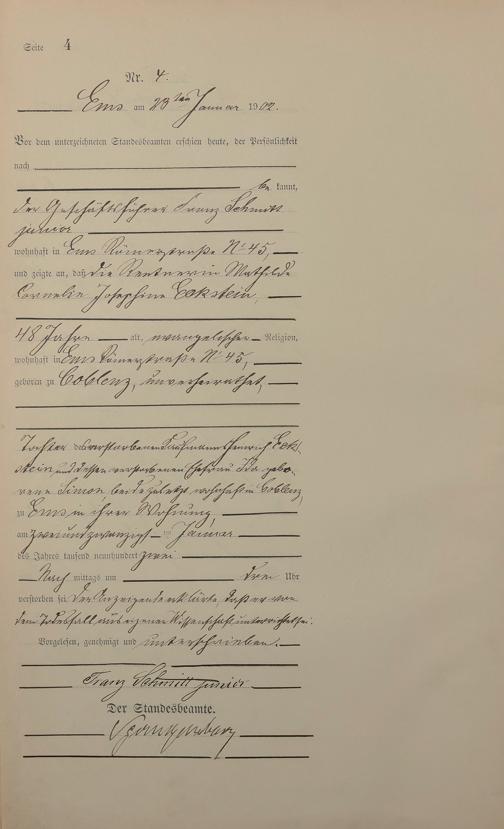 Seite 4
Nr. 4.
Ems am 23ten Januar 1902.
Vor dem unterzeichneten Standesbeamten erschien heute, der Persönlichkeit
nach
be kannt,
der Geschäftsführer Franz Schmitt
junior
wohnhaft in Ems Römerstraße No 45,
und zeigte an, daß die Rentnerin Mathilde
Cornelie Josephine Eckstein,
48 Jahre alt, evangelischer Religion,
wohnhaft in Ems Römerstraße No 45,
geboren zu Coblenz, unverheirathet,
Tochter des verstorbenen Kaufmann Heinrich Eck-
stein und dessen verstorbenen Ehefrau Ida gebo-
rene Simon, beide zuletzt wohnhaft in Coblenz,
zu Ems in ihrer Wohnung
am zweiundzwanzigsten Januar
des Jahres tausend neunhundert zwei
Nach mittags um drei Uhr
verstorben sei. Der Anzeigende erklärte, daß er von
dem Todesfall aus eigener Wissenschaft unterrichtet sei.
Vorgelesen, genehmigt und unterschrieben.
Franz Schmitt junior
Der Standesbeamte.
Spangenberg